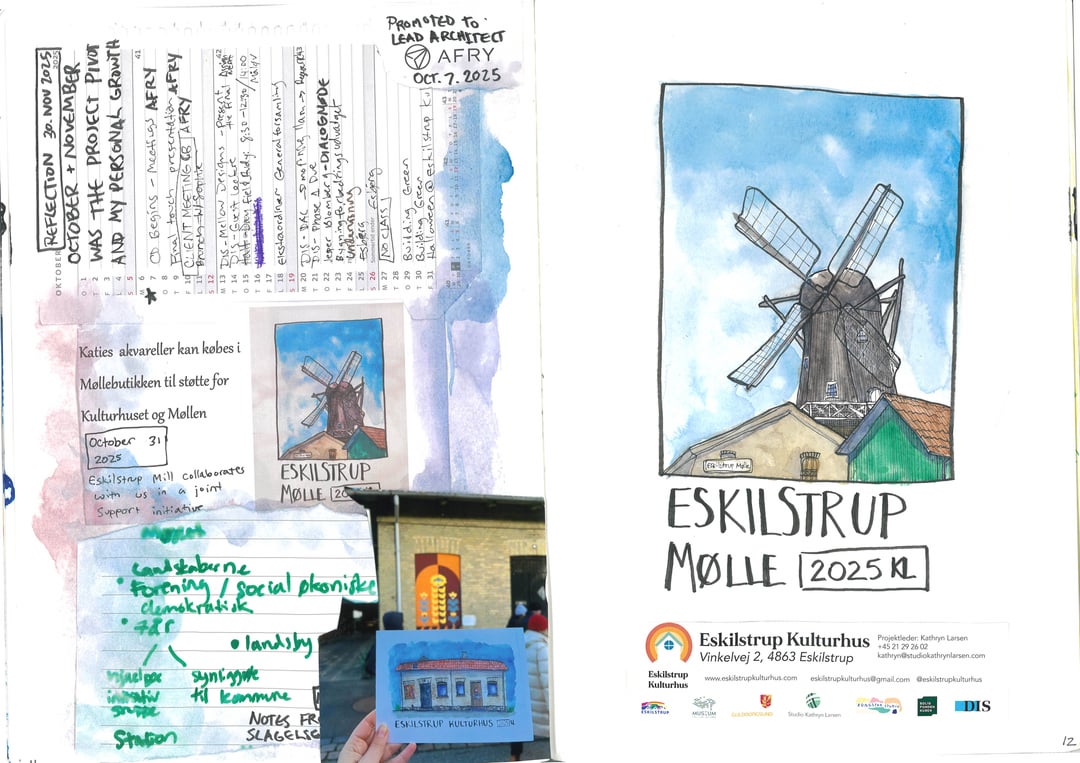 REFLECTION 30. NOV 2025
OCTOBER + NOVEMBER
WAS THE PROJECT PIVOT
AND MY PERSONAL GROWTH
PROMOTED TO
LEAD ARCHITECT
AFRY
OCT. 7. 2025
OKTOBER 2025
O 1
T 2
F 3
L 4
S 5
M 6 41
T 7 CD Begins - Meetings AFRY
O 8
T 9 Final touch presentation AFRY
F 10 CLIENT MEETING AFRY
L 11 Brunch w/ Sophie
S 12
M 13 DIS - Mellow Designs - present the final 42
T 14 DIS - Guest Lecture
O 15 Half-Day Field Study: 8:30-12:30/14:00
T 16
F 17
L 18 Ekstraordinær Generalforsamling
S 19
M 20 DIS - DAC
T 21 DIS - Phase A Due
O 22 DIALOGMØDE
T 23 Bygningforbedringsudvalget
F 24 Undervisning
L 25 Esbjerg
S 26 Sommertid ender Esbjerg
M 27 NO CLASS
T 28
O 29 Building Green
T 30 Building Green
F 31 Halloween @ Eskilstrup Ku
Katies akvareller kan købes i
Møllebutikken til støtte for
Kulturhuset og Møllen
October 31
2025
Eskilstrup Mill collaborates
with us in a joint
support initiative
ESKILSTRUP
MØLLE
Landskaberne
Forening / social økoniske
demokratisk
7 år
landsby
hjælpe
initiativ
støtte
synliggøre
til kommune
Station
NOTES FR
SLAGELSE
ESKILSTRUP KULTURHUS
Eskilstrup Mølle
ESKILSTRUP
MØLLE 2025 KL
Eskilstrup Kulturhus
Vinkelvej 2, 4863 Eskilstrup
Projektleder: Kathryn Larsen
+45 21 29 26 02
kathryn@studiokathrynlarsen.com
Eskilstrup
Kulturhus
www.eskilstrupkulturhus.com eskilstrupkulturhus@gmail.com @eskilstrupkulturhus
ESKILSTRUP
MUSEUM
GULDBORGSUND
Studio Kathryn Larsen
DIS
12